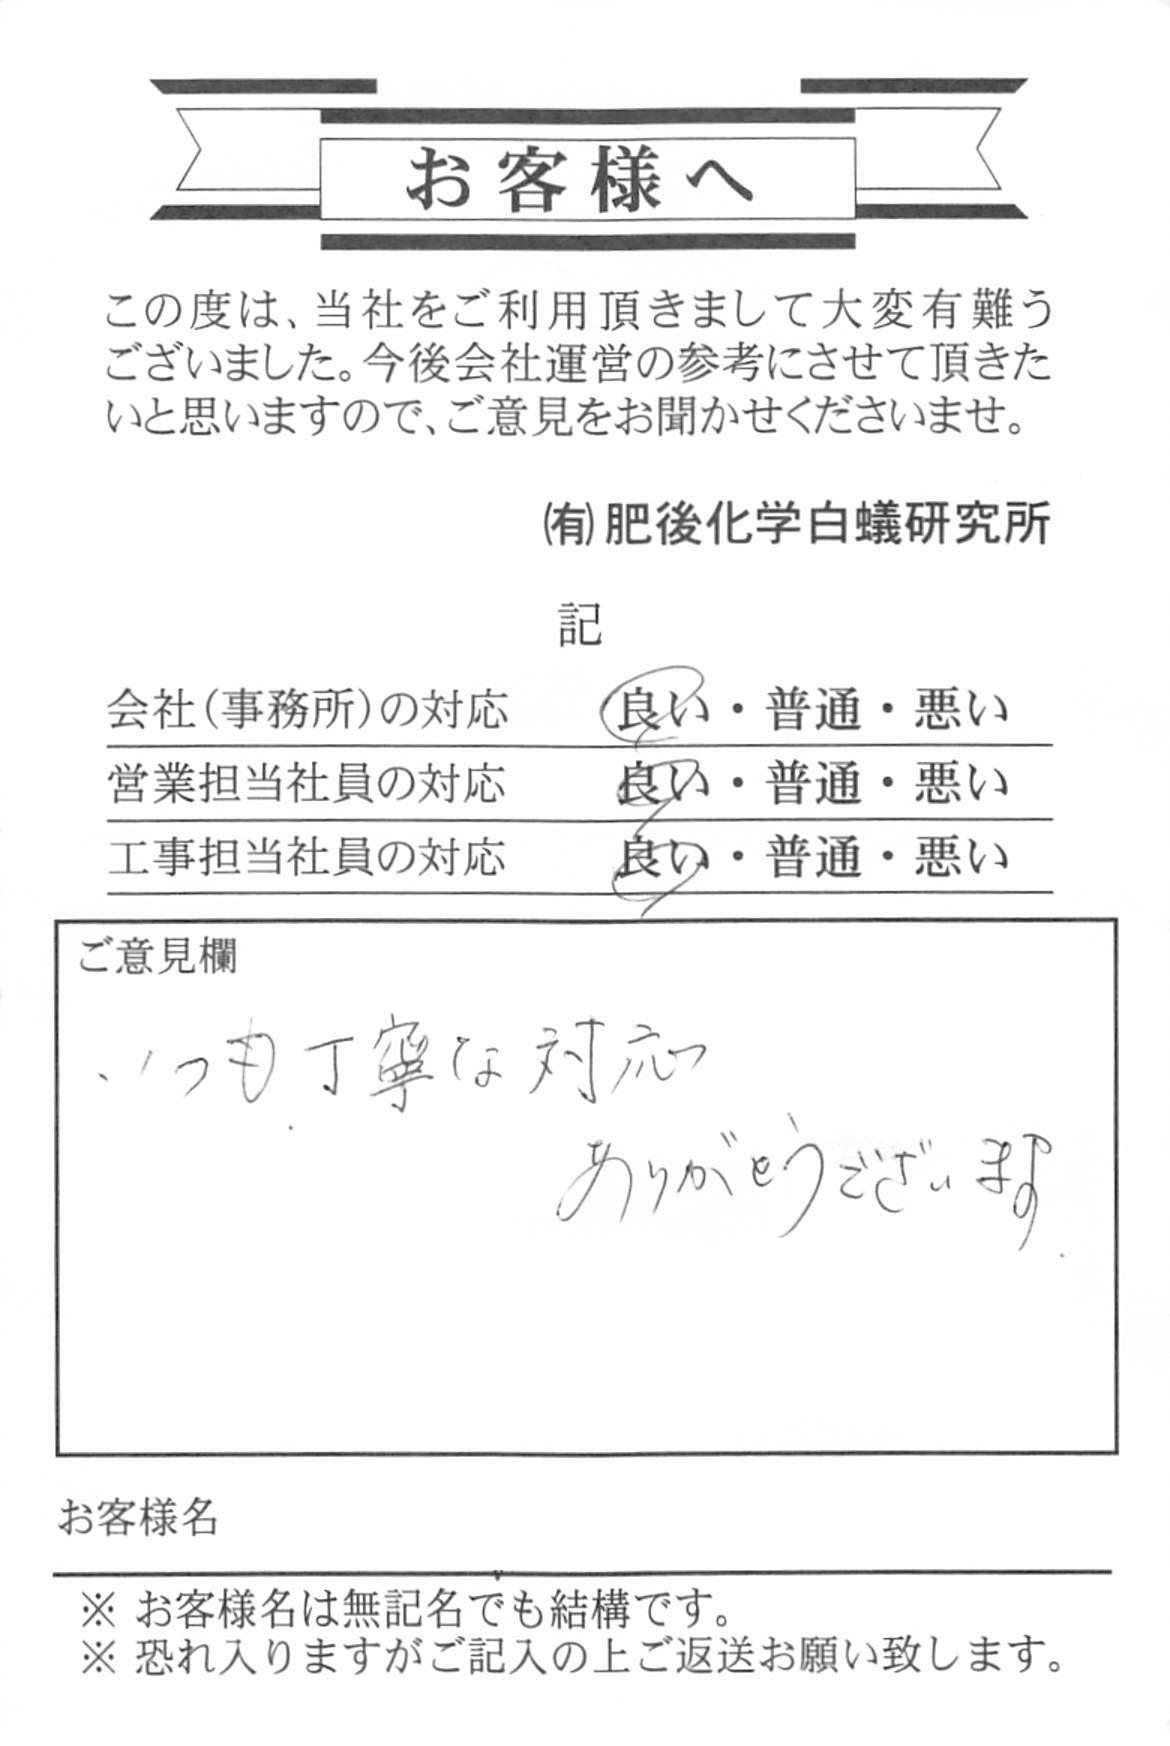 お客様へ
この度は、当社をご利用頂きまして大変有難う
ございました。今後会社運営の参考にさせて頂きた
いと思いますので、ご意見をお聞かせくださいませ。
㈲肥後化学白蟻研究所
記
会社(事務所)の対応 良い・普通・悪い
営業担当社員の対応 良い・普通・悪い
工事担当社員の対応 良い・普通・悪い
ご意見欄
いつも丁寧な対応
ありがとうございます
お客様名
※ お客様名は無記名でも結構です。
※ 恐れ入りますがご記入の上ご返送お願い致します。